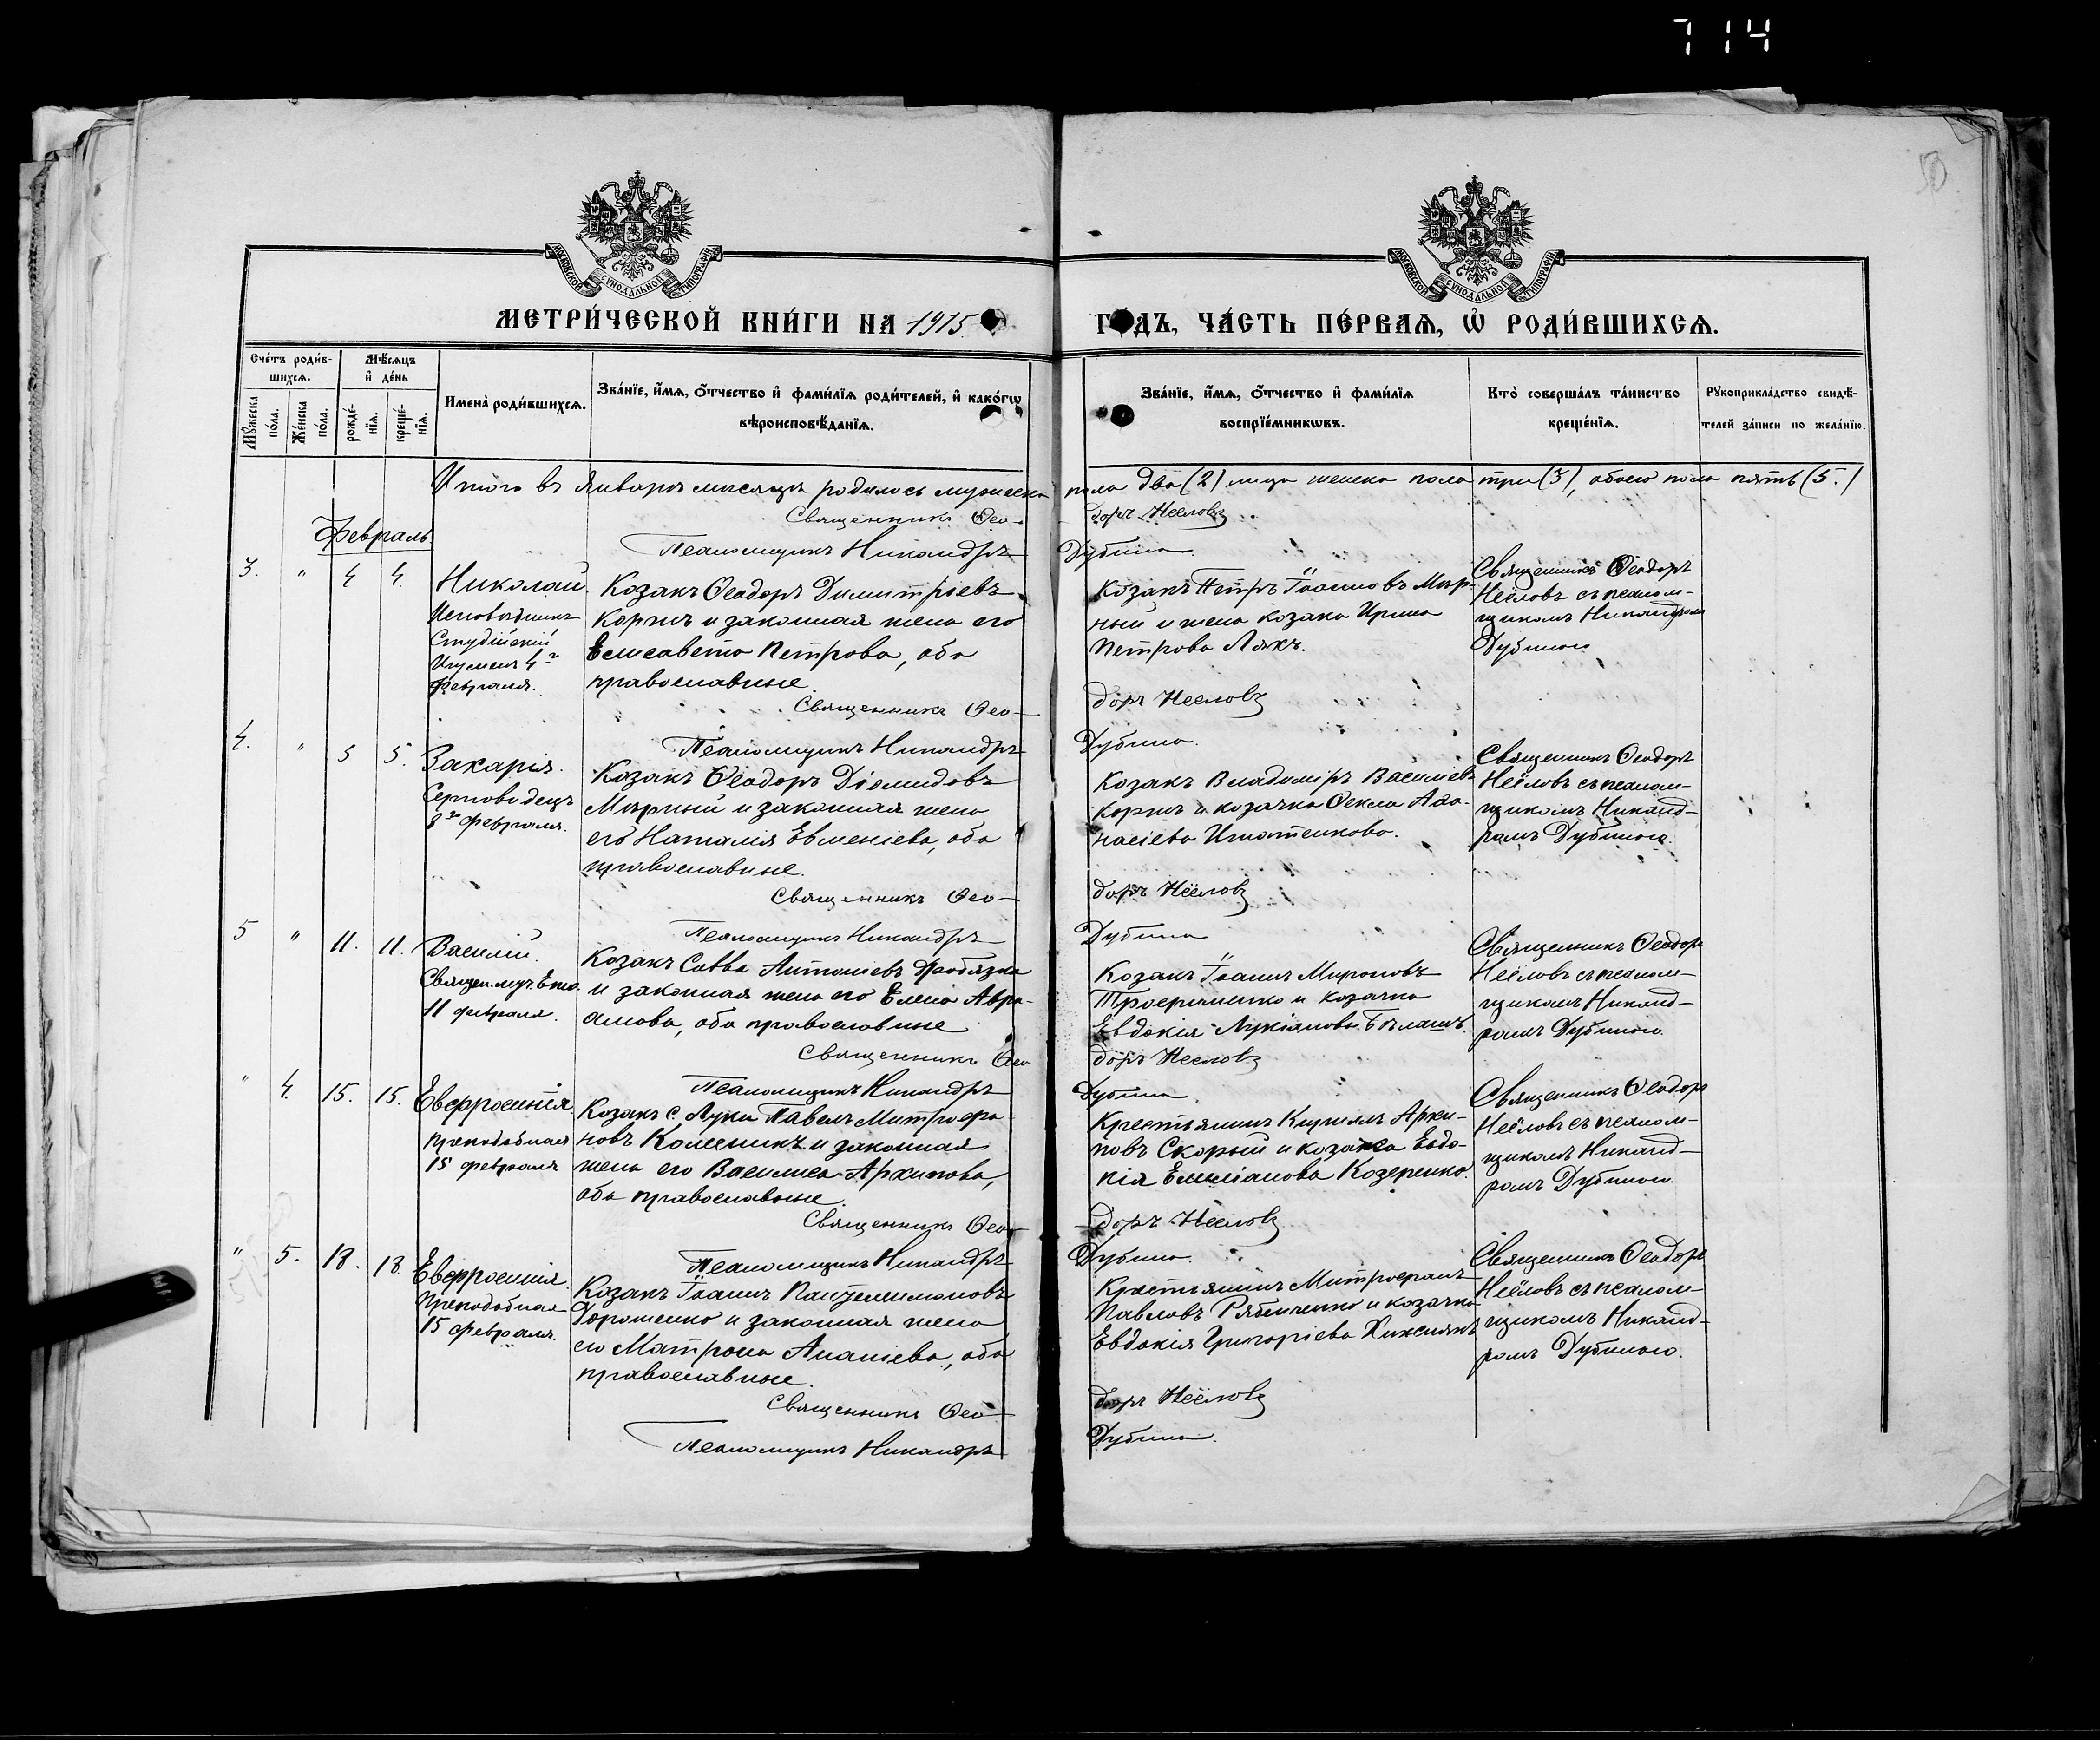 714
50
МОСКОВСКОЙ СѴНОДАЛЬНОЙ ТИПОГРАФІИ
МОСКОВСКОЙ СѴНОДАЛЬНОЙ ТИПОГРАФІИ
МЕТРИ́ЧЕСКОЙ КНИ́ГИ НА 1915
ГОДЪ, ЧА́СТЬ ПЕ́РВАѦ, Ѡ҆ РОДИ́ВШИХСѦ.
Сче́тъ роди́в-
шихсѧ.
Мѣ́сѧцъ
и҆ де́нь
Мꙋ́жеска
по́ла.
Же́нска
по́ла.
рожде́-
нїѧ.
креще́-
нїѧ.
Имена̀ роди́вшихсѧ.
Зва́нїе, и҆́мѧ, ѻ҆́тчество и҆ фами́лїѧ роди́телей, и҆ како́гѡ
вѣроисповѣ́данїѧ.
Зва́нїе, и҆́мѧ, ѻ҆́тчество и҆ фами́лїѧ
воспрїе́мникѡвъ.
Кто̀ соверша́лъ та́инство
креще́нїѧ.
Рꙋкоприкла́дство свидѣ́-
телей за́писи по жела́нїю.
Итого въ Январѣ мѣсяцѣ родилось мужеска пола два (2) лица женска пола три (3), обоего пола пять (5.)
Священникъ Ѳео-
доръ Нееловъ
Февраль
Псаломщикъ Никандръ
Дубина.
3. " 4 4.
Николай
Исповѣдникъ
Студійскій
Игуменъ 4го
февраля.
Козакъ Ѳеодоръ Димитріевъ
Коржъ и законная жена его
Елисавета Петрова, оба
православные.
Козакъ Петръ Іоанновъ Мир-
ный и жена козака Ирина
Петрова Ляхъ.
Священникъ Ѳеодоръ
Нееловъ съ псалом-
щикомъ Никандромъ
Дубиною
Священникъ Ѳео-
доръ Нееловъ
Псаломщикъ Никандръ
Дубина.
4. " 5 5.
Захарія.
Серповидецъ
8го февраля.
Козакъ Ѳеодоръ Діомидовъ
Мирный и законная жена
его Наталія Евменіева, оба
православные.
Козакъ Владиміръ Васильевъ
Коржъ и козачка Ѳекла Аѳа-
насіева Игнатенкова.
Священникъ Ѳеодоръ
Нееловъ съ псалом-
щикомъ Никанд-
ромъ Дубиною.
Священникъ Ѳео-
доръ Нееловъ
Псаломщикъ Никандръ
Дубина
5 " 11. 11.
Василій.
Священ. муч. Власія
11 февраля.
Козакъ Савва Антоніевъ
и законная жена его Елена Авра-
амова, оба православные
Козакъ Іоаннъ Мироновъ
Трофименко и козачка
Евдокія Лукіанова Билашъ.
Священникъ Ѳеодоръ
Нееловъ съ псалом-
щикомъ Никанд-
ромъ Дубиною.
Священникъ Ѳео-
доръ Нееловъ
Псаломщикъ Никандръ
Дубина.
" 4. 15. 15.
Евфросинія.
Преподобная
15 февраля
Козакъ с. Луки Павелъ Митрофа-
новъ Колесникъ и законная
жена его Василиса Архипова,
оба православные.
Крестьянинъ Кириллъ Архи-
повъ Скорый и козачка Евдо-
кія Емиліанова Козеренко.
Священникъ Ѳеодоръ
Нееловъ съ псалом-
щикомъ Никанд-
ромъ Дубиною.
Священникъ Ѳео-
доръ Нееловъ
Псаломщикъ Никандръ
Дубина.
" 5. 18. 18.
Евфросинія.
Преподобная
15 февраля.
Козакъ Іоаннъ Пантелеимоновъ
Дорошенко и законная жена
его Матрона Ананіева, оба
православные.
Крестьянинъ Митрофанъ
Павловъ Рябиченко и козачка
Евдокія Григоріева Хижнякъ
Священникъ Ѳеодоръ
Нееловъ съ псалом-
щикомъ Никанд-
ромъ Дубиною.
Священникъ Ѳео-
доръ Нееловъ
Псаломщикъ Никандръ
Дубина.